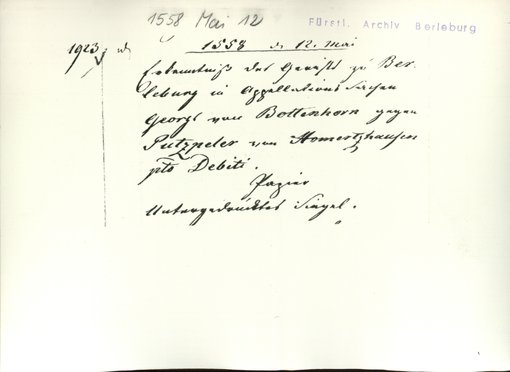 1558 Mai 12
Fürstl. Archiv Berleburg
1923
1558 d. 12. Mai
Erkenntniß des Gerichts zu Ber-
leburg in Appellations Sachen
Georgs von Bottenhorn gegen
von Homertzhausen
pto Debiti.
Papier
Untergedrücktes Siegel.